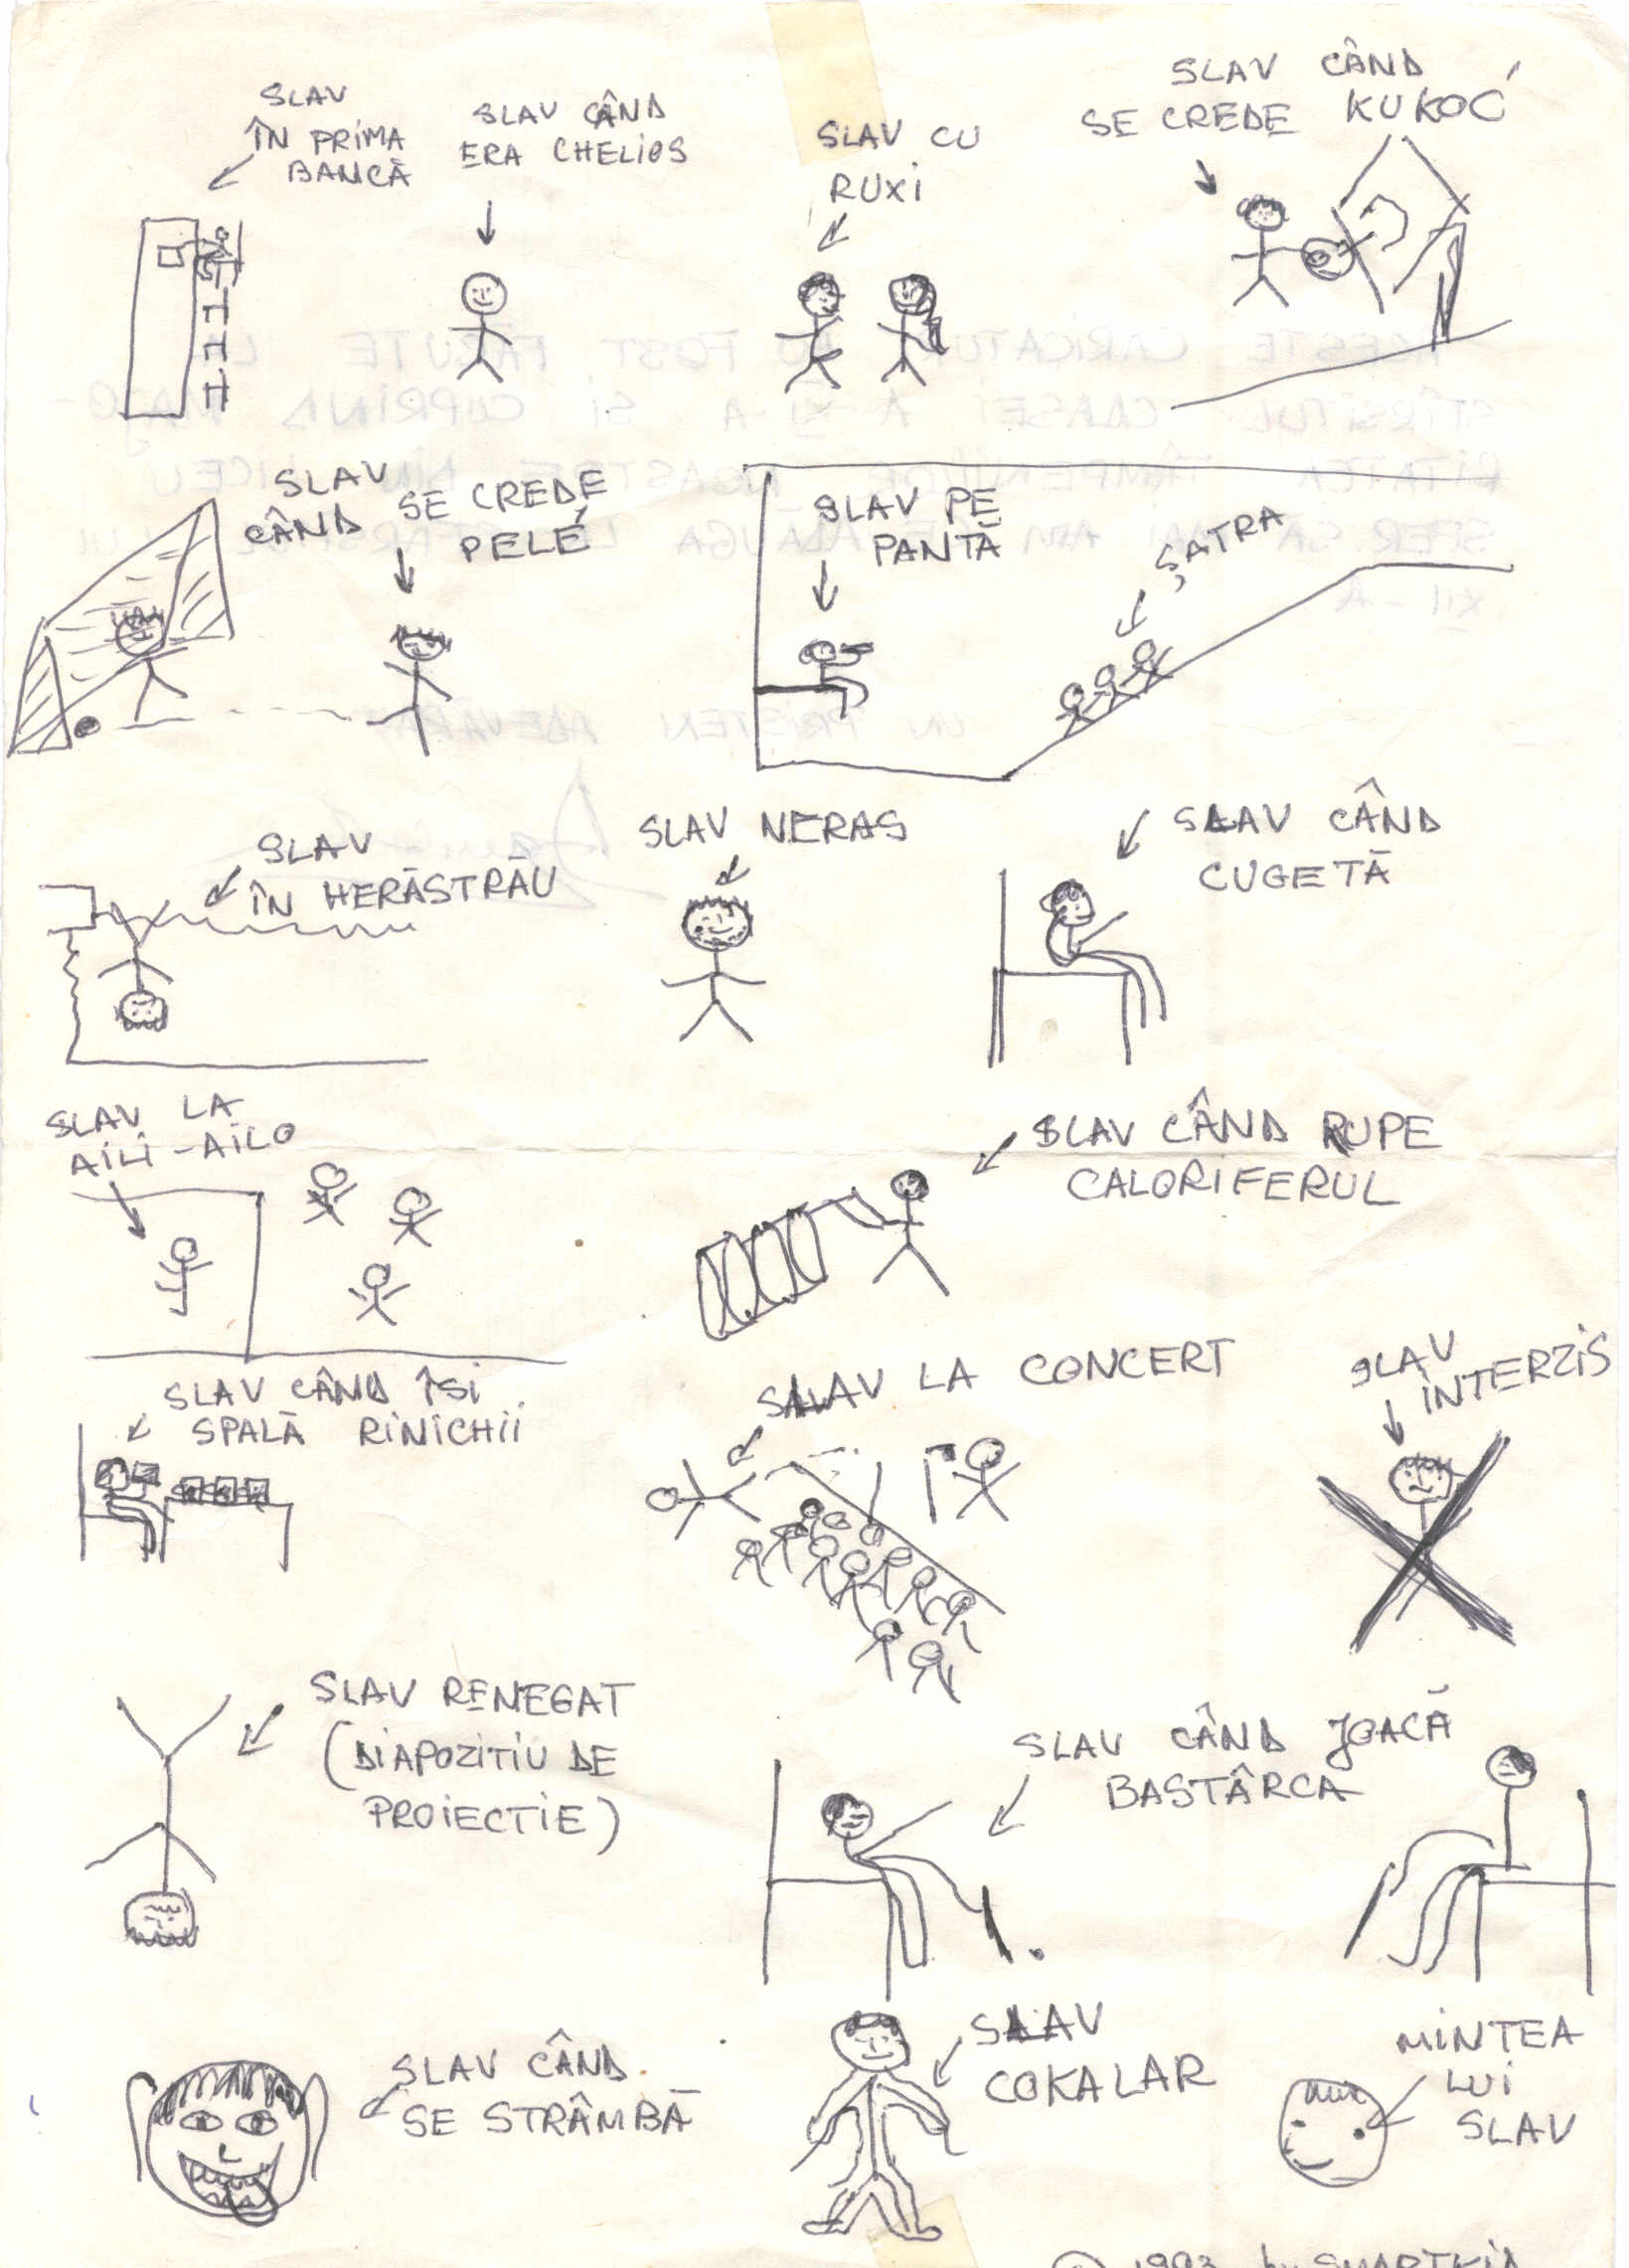 SLAV
ÎN PRIMA
BANCĂ
SLAV CÂND
ERA CHELIOS
SLAV CU
RUXI
SLAV CÂND
SE CREDE KUKOĆ
SLAV
CÂND SE CREDE
PELÉ
SLAV PE
PANTĂ
ȘATRA
SLAV
ÎN HERĂSTRĂU
SLAV NERAS
SLAV CÂND
CUGETĂ
SLAV LA
AILI-AILO
SLAV CÂND RUPE
CALORIFERUL
SLAV CÂND ÎSI
SPALĂ RINICHII
SLAV LA CONCERT
SLAV
INTERZIS
SLAV RENEGAT
(DIAPOZITIU DE
PROIECTIE)
SLAV CÂND JOACĂ
BASTÂRCA
SLAV CÂND
SE STRÂMBĂ
SLAV
COKALAR
MINTEA
LUI
SLAV
© 1993 by SMARTKID